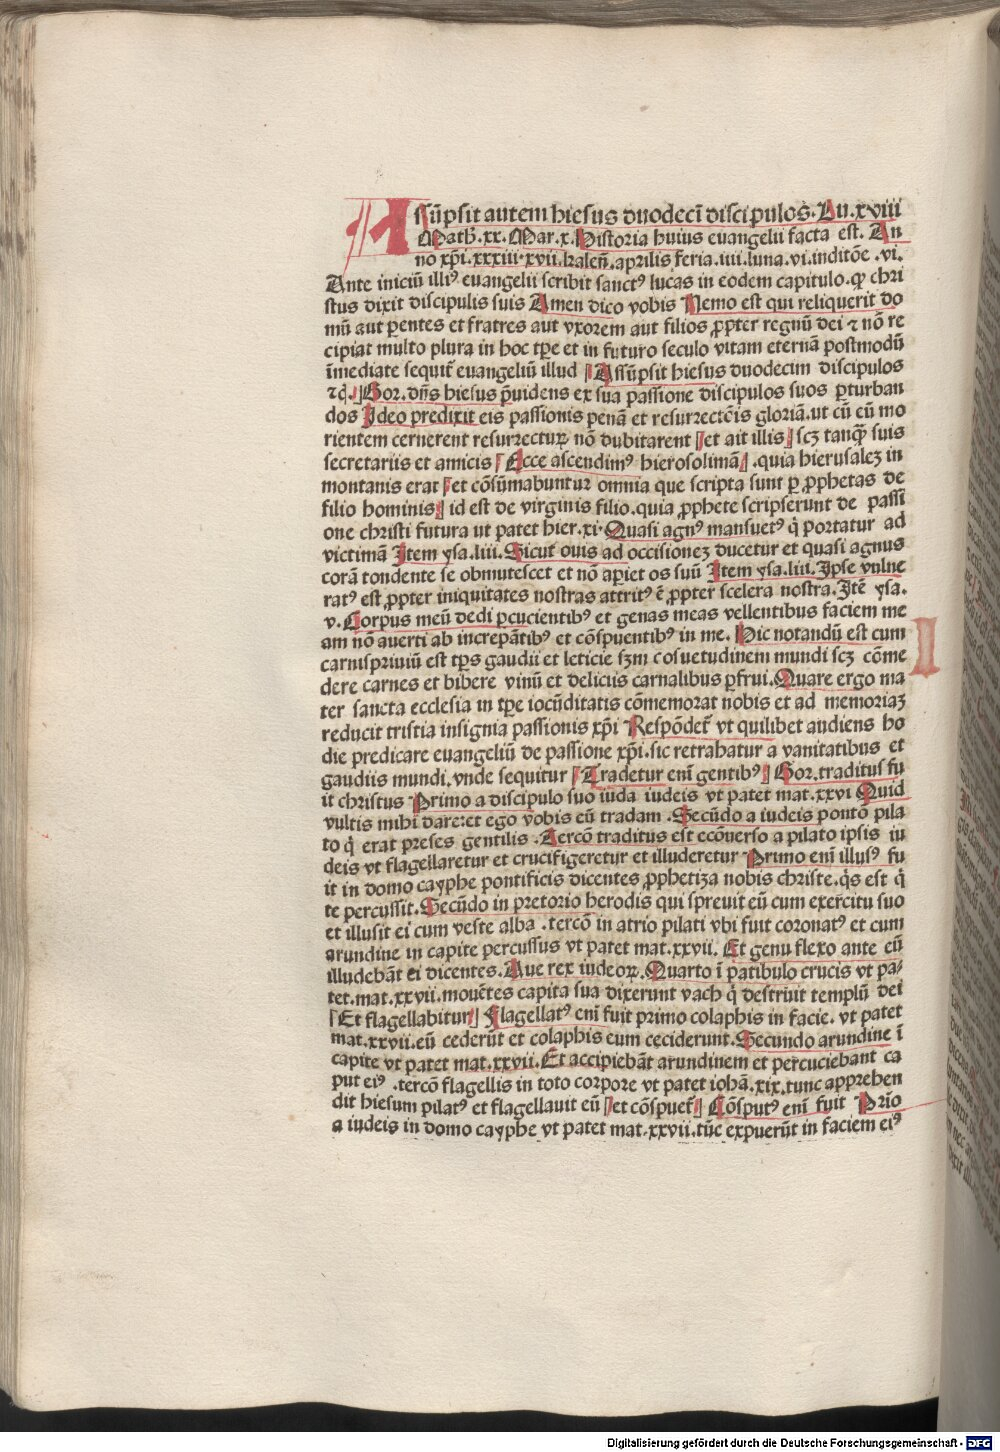 Assūpsit autem hiesus duodecī discipulos. Lu. xviii
Math. xx. Mar. x. Historia huius euangelii facta est. An
no xp̄i. xxxiii. xvii. kalen̄. aprilis feria. iiii. luna. vi. inditōe. vi.
Ante iniciū illiꝰ euangelii scribit sanctꝰ lucas in eodem capitulo. ꝙ chri
stus dixit discipulis suis Amen dico vobis Nemo est qui reliquerit do
mū aut ꝑentes et fratres aut vxorem aut filios ꝓpter regnū dei ⁊ nō re
cipiat multo plura in hoc tp̄e et in futuro seculo vitam eternā postmodū
īmediate sequit̄ euangeliū illud [Assūpsit hiesus duodecim discipulos
⁊cꝭ.] Gor. dn̄s hiesus p̄uidens ex sua passione discipulos suos ꝑturban
dos Ideo predixit eis passionis penā et resurrectōis gloriā. ut cū eū mo
rientem cernerent resurrecturꝫ nō dubitarent [et ait illis] scꝫ tanꝙ̄ suis
secretariis et amicis [Ecce ascendimꝰ hierosolimā]. quia hierusaleꝫ in
montanis erat [et cōsūmabuntur omnia que scripta sunt ꝑ ꝓphetas de
filio hominis] id est de virginis filio. quia ꝓphete scripserunt de passi
one christi futura ut patet hier. xi. Quasi agnꝰ mansuetꝰ q̇ portatur ad
victimā Item ysa. liii. Sicut ouis ad occisioneꝫ ducetur et quasi agnus
corā tondente se obmutescet et nō aꝑiet os suū Item ysa. liii. Ipse vulne
ratꝰ est ꝓpter iniquitates nostras attritꝰ ē ꝓpter scelera nostra. Itē ysa.
v. Corpus meū dedi ꝑcucientibꝰ et genas meas vellentibus faciem me
am nō auerti ab increpātibꝰ et cōspuentibꝰ in me. Hic notandū est cum
carnispriuiū est tp̄s gaudii et leticie sꝫm cosuetudinem mundi scꝫ cōme
dere carnes et bibere vinū et deliciis carnalibus ꝑfrui. Quare ergo ma
ter sancta ecclesia in tp̄e iocūditatis cōmemorat nobis et ad memoriaꝫ
reducit tristia insignia passionis xp̄i Respōdet̄ vt quilibet audiens ho
die predicare euangeliū de passione xp̄i. sic retrahatur a vanitatibus et
gaudiis mundi. vnde sequitur [Tradetur enī gentibꝰ] Gor. traditus fu
it christus Primo a discipulo suo iuda iudeis vt patet mat. xxvi Quid
vultis mihi dare: et ego vobis eū tradam. Secūdo a iudeis pontō pila
to q̇ erat preses gentilis. Tercō traditus est ecōuerso a pilato ipsis iu
deis vt flagellaretur et crucifigeretur et illuderetur Primo enī illusꝰ fu
it in domo cayphe pontificis dicentes ꝓphetiza nobis christe. q̇s est q̇
te percussit. Secūdo in pretorio herodis qui spreuit eū cum exercitu suo
et illusit ei cum veste alba. tercō in atrio pilati vbi fuit coronatꝰ et cum
arundine in capite percussus vt patet mat. xxvii. Et genu flexo ante eū
illudebāt ei dicentes. Aue rex iudeoꝝ. Quarto ī patibulo crucis vt pa-
tet. mat. xxvii. mouētes capita sua dixerunt vach q̇ destruit templū dei
[Et flagellabitur] Flagellatꝰ enī fuit primo colaphis in facie. vt patet
mat. xxvii. eū cederūt et colaphis eum ceciderunt. Secundo arundine ī
capite vt patet mat. xxvii. Et accipiebāt arundinem et percuciebant ca
put eiꝰ. tercō flagellis in toto corpore vt patet iohā. xix. tunc apprehen
dit hiesum pilatꝰ et flagellauit eū [et cōspuet̄] Cōsputꝰ enī fuit Prīo
a iudeis in domo cayphe vt patet mat. xxvii. tūc expuerūt in faciem eiꝰ
I
Digitalisierung gefördert durch die Deutsche Forschungsgemeinschaft - DFG